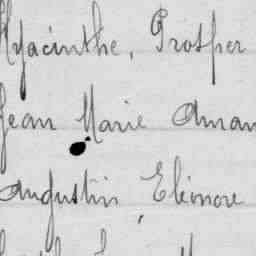 Hyacinthe, Prosper
Jean Marie Aman
Augustin Eléonore